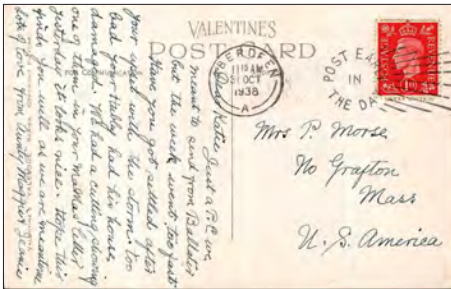 VALENTINES
POST CARD
ABERDEEN
11 15 AM
31 OCT
1938
A
POST EARLY
IN
THE DAY
POSTAGE
REVENUE
Dear Katie Just a P.C. we
meant to send from Ballater
but the week went too fast
Have you got settled after
your upset with the storm. too
bad your Hubby had his house
damaged. We had a cutting showing
one of them in your Mamas letter,
yesterday it looks nice. Hope this
finds you well as we are meantime
Lots of Love from Aunty Maggie & Jeanie
Mrs P. Morse
No Grafton
Mass
U. S. America